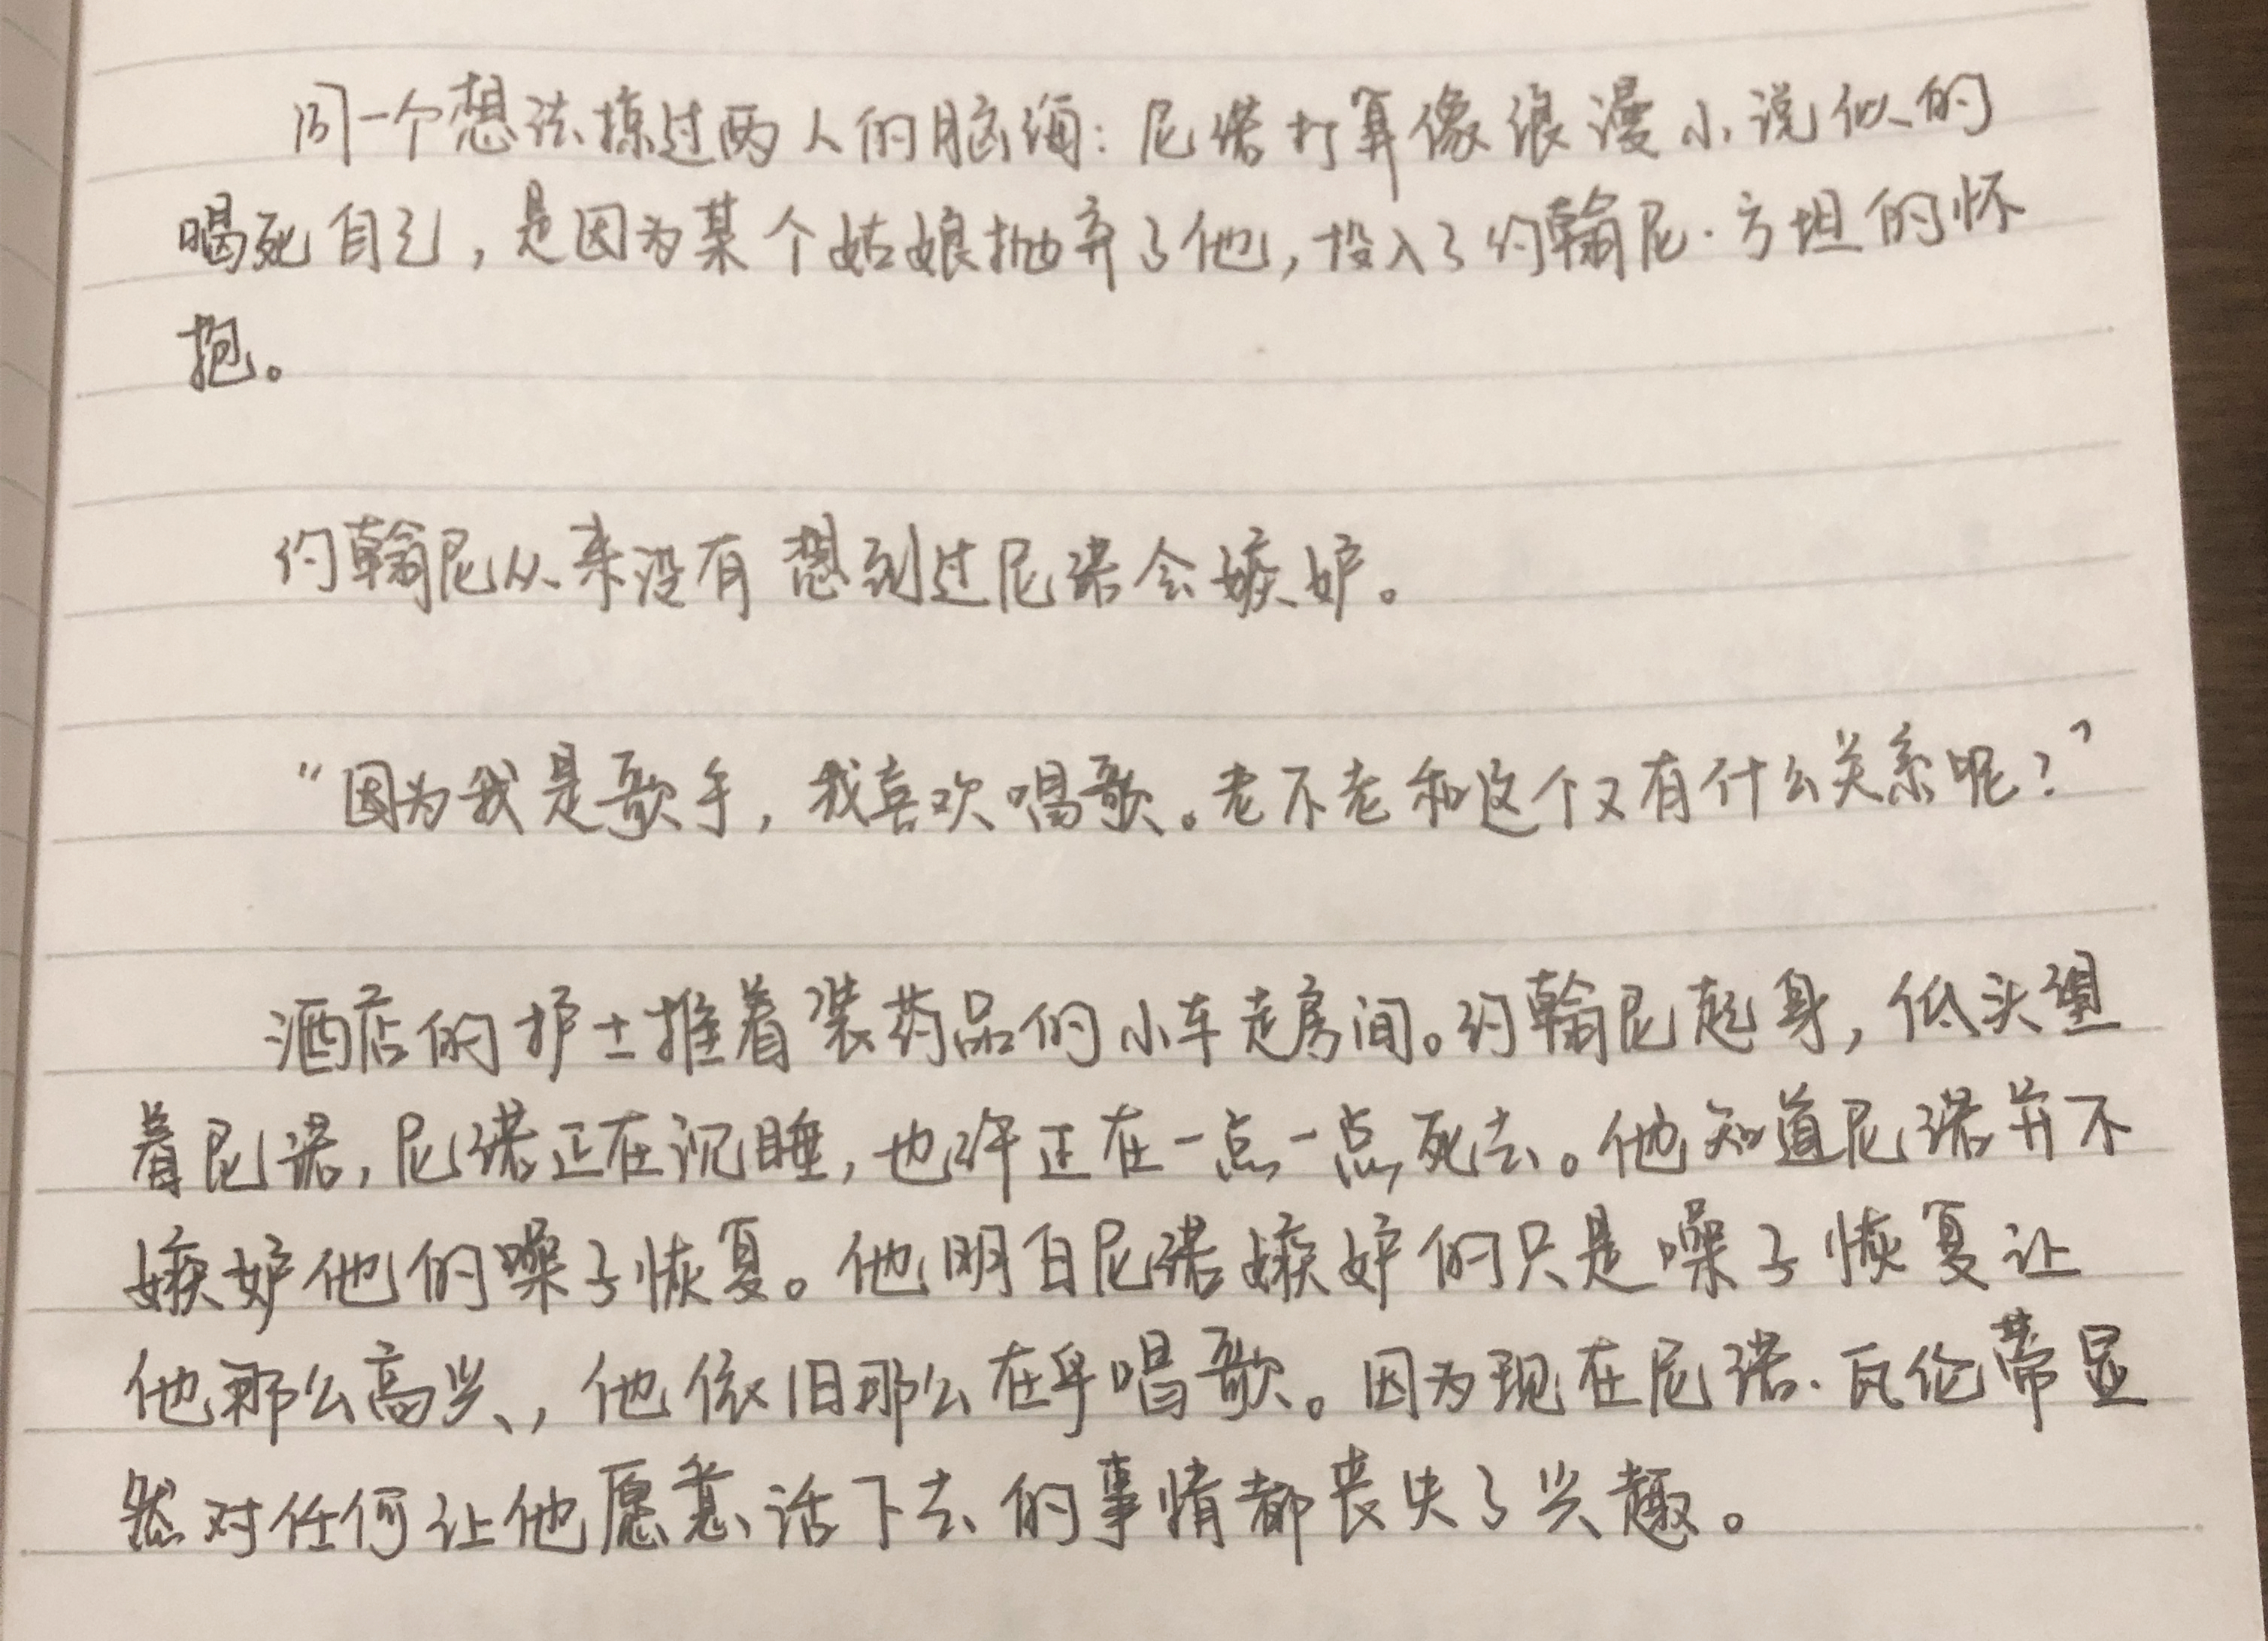 同一个想法掠过两人的脑海：尼诺打算像浪漫小说似的
喝死自己，是因为某个姑娘抛弃了他，投入了约翰尼·方坦的怀
抱。
约翰尼从来没有想到过尼诺会嫉妒。
“因为我是歌手，我喜欢唱歌。老不老和这个又有什么关系呢？”
酒店的护士推着装药品的小车走房间。约翰尼起身，低头望
着尼诺，尼诺正在沉睡，也许正在一点一点死去。他知道尼诺并不
嫉妒他的嗓子恢复。他明白尼诺嫉妒的只是嗓子恢复让
他那么高兴，他依旧那么在乎唱歌。因为现在尼诺·瓦伦蒂显
然对任何让他愿意活下去的事情都丧失了兴趣。